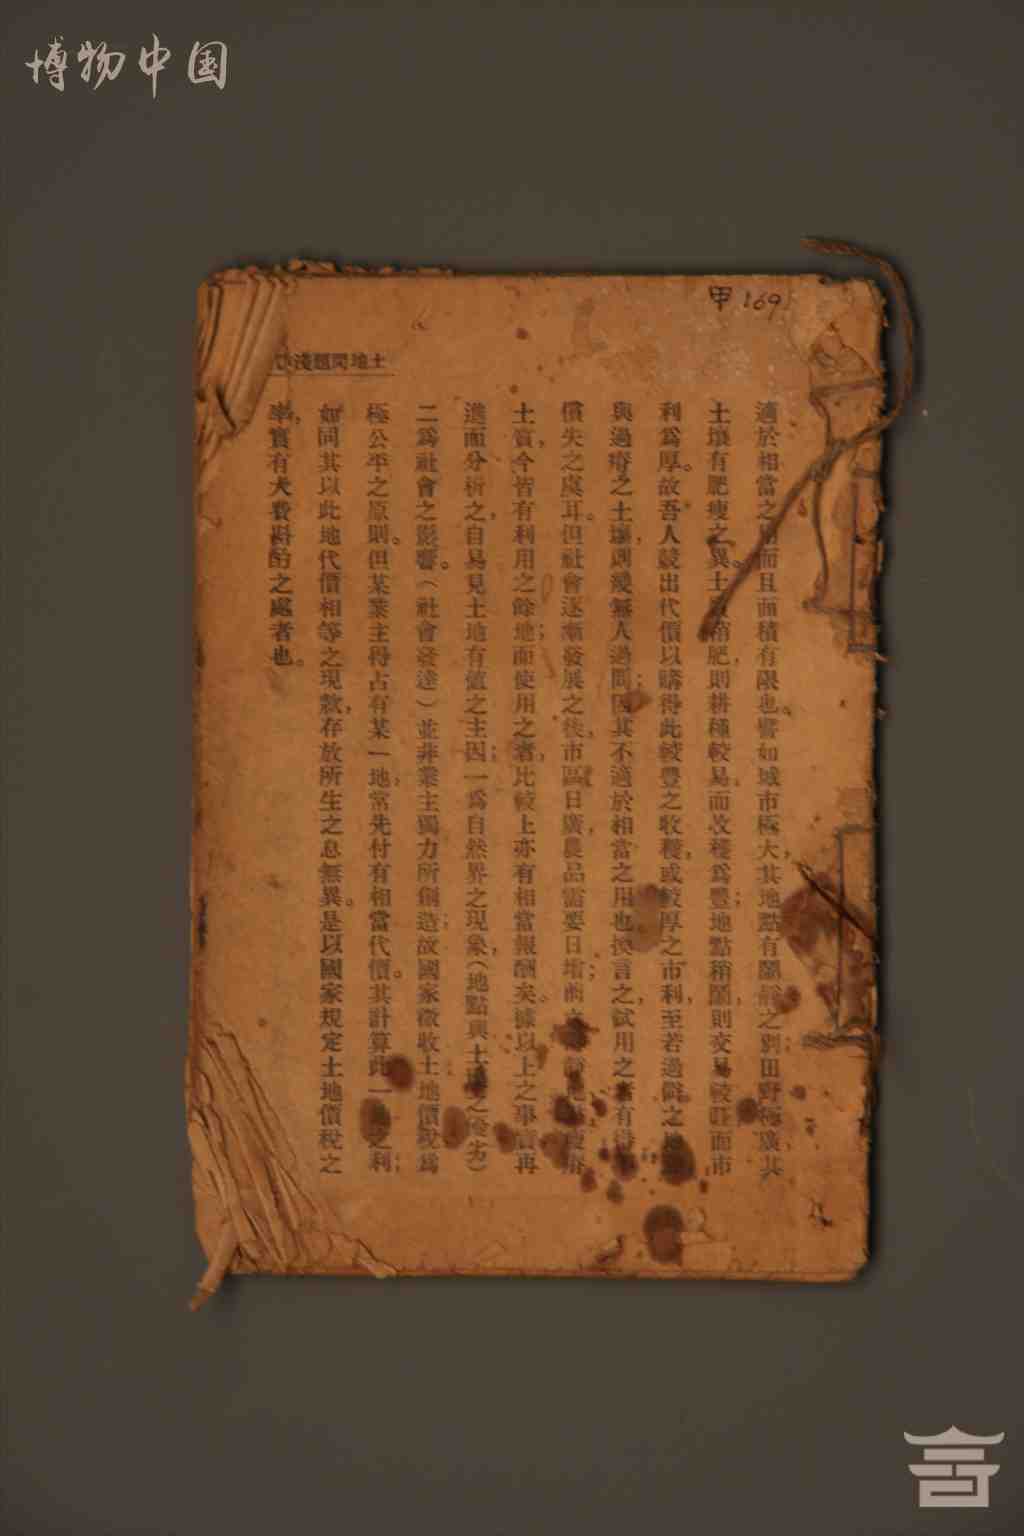 博物中国
甲 169
土地問題淺
適於相當之用而且面積有限也。譬如城市極大，其地點有鬧靜之別；田野極廣，其
土壤有肥瘦之異。土稍肥，則耕種較易，而收穫爲豐；地點稍鬧，則交易較旺，而市
利爲厚。故吾人競出代價以購得此較豐之收穫，或較厚之市利，至若過僻之
與過瘠之土壤，則幾無人過問；因其不適於相當之用也，換言之，試用之者有得
償失之虞耳。但社會逐漸發展之後，市區日廣，農品需要日增；
土質，今皆有利用之餘地；而使用之者，比較上亦有相當報酬矣。據以上之事再
進而分析之，自易見土地有值之主因；一爲自然界之現象，（地點與土之優劣）
二爲社會之影響。（社會發達）並非業主獨力所創造；故國家徵收土地價稅，爲
極公平之原則。但某業主得占有某一地，當先付有相當代價。其計算此一之利；
如同其以此地代價相等之現款，存放所生之息無異。是以國家規定土地價稅之
率，實有大費斟酌之處者也。